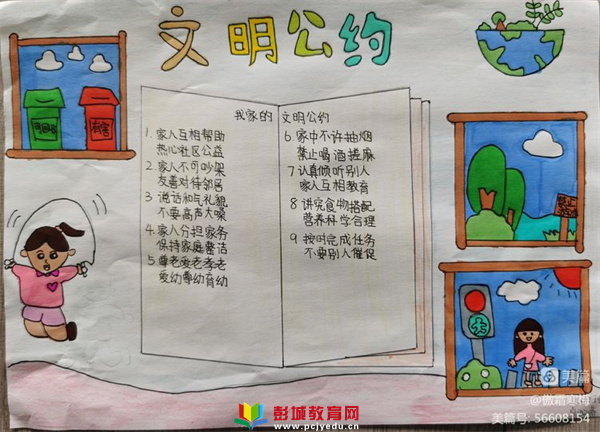 文明公约
我家的 文明公约
1. 家人互相帮助
热心社区公益
2. 家人不可吵架
友善对待邻居
3 说话和气礼貌
不要高声大嗓
4. 家人分担家务
保持家庭整洁
5 尊老爱老孝老
爱幼尊幼育幼
6 家中不许抽烟
禁止喝酒搓麻
7 认真倾听别人
家人互相教育
8 讲究食物搭配
营养科学合理
9 按时完成任务
不要别人催促
可回收
有害
美篇
@傲霜寒梅
美篇号: 56608154
彭城教育网
www.pcjyedu.cn